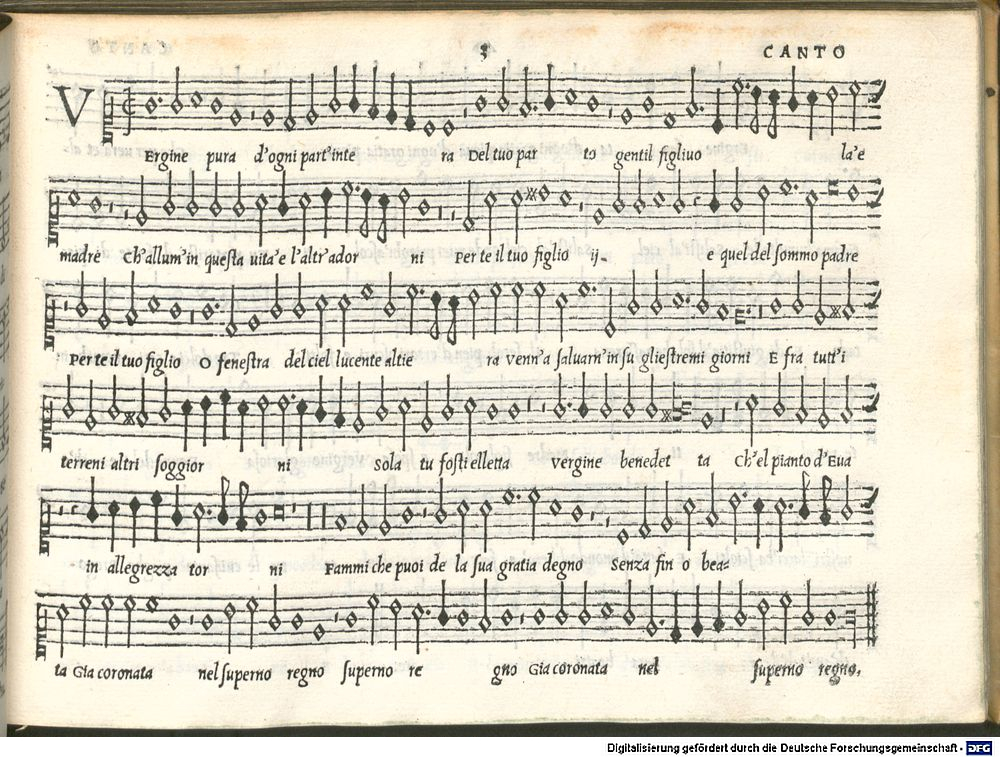 3
CANTO
VErgine pura d'ogni part'inte ra Del tuo par to gentil figliuo la'e
madre Ch'allum'in questa uita'e l'altr'ador ni Per te il tuo figlio ij. e quel del sommo padre
Per te il tuo figlio O fenestra del ciel lucente altie ra venn'a saluarn'in su gliestremi giorni E fra tutt'i
terreni altri soggior ni Sola tu fosti elletta vergine benedet ta Ch'el pianto d'Eua
in allegrezza tor ni Fammi che puoi de la sua gratia degno Senza fin o bea-
ta Gia coronata nel superno regno superno re gno Gia coronata nel superno regno.
Digitalisierung gefördert durch die Deutsche Forschungsgemeinschaft - DFG